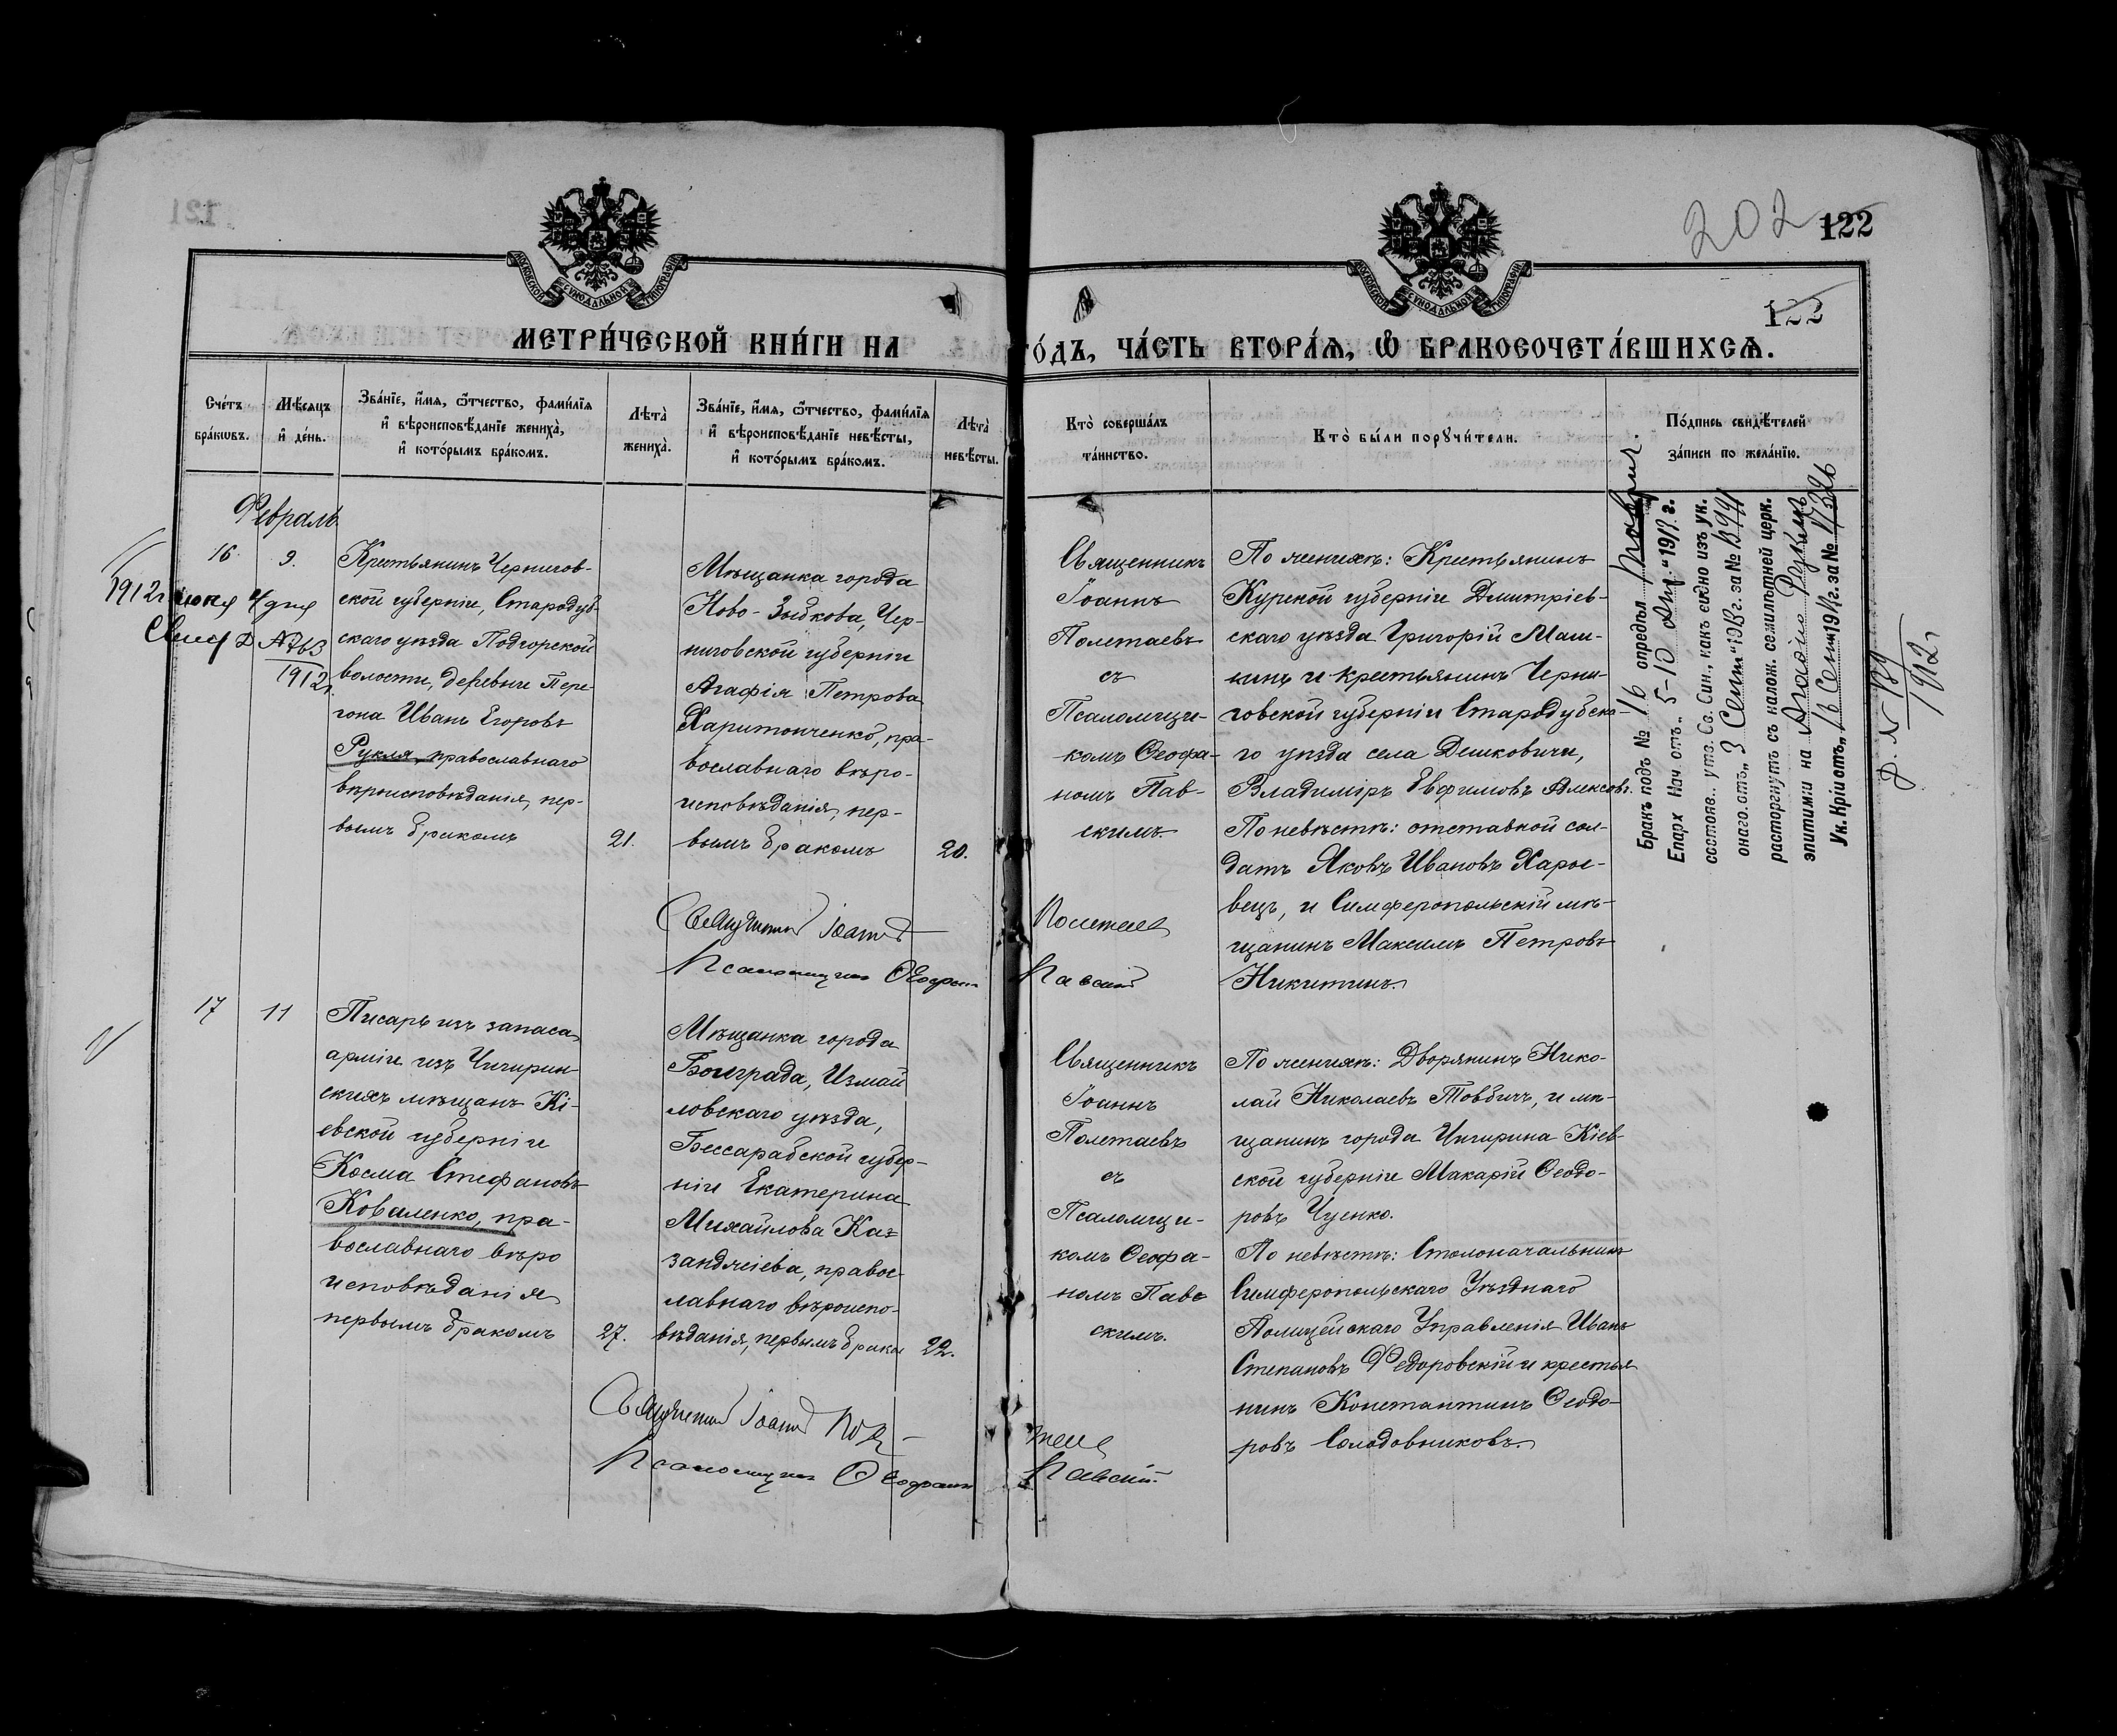 202 122
122
МОСКОВСКОЙ СѴНОДАЛЬНОЙ ТИПОГРАФІИ
МОСКОВСКОЙ СѴНОДАЛЬНОЙ ТИПОГРАФІИ
МЕТРИ́ЧЕСКОЙ КНИ́ГИ НА
ГО́ДЪ, ЧА́СТЬ ВТОРА́Ѧ, Ѡ҆ БРАКОСОЧЕТА́ВШИХСѦ.
Сче́тъ
бра́кѡвъ.
Мѣ́сѧцъ
и҆ де́нь.
Зва́нїе, и҆́мѧ, ѻ҆́тчество, фами́лїѧ
и҆ вѣроисповѣ́данїе жениха̀,
и҆ кото́рымъ бра́комъ.
Лѣта̀
жениха̀.
Зва́нїе, и҆́мѧ, ѻ҆́тчество, фами́лїѧ
и҆ вѣроисповѣ́данїе невѣ́сты,
и҆ кото́рымъ бра́комъ.
Лѣта̀
невѣ́сты.
Кто̀ соверша́лъ
та́инство.
Кто̀ бы́ли порꙋчи́тели.
По́дпись свидѣ́телей
за́писи по жела́нїю.
Февраль
16.
9.
1912 г. июня 4 дня
1912 г.
Крестьянинъ Чернигов-
ской губерніи, Стародуб-
скаго уѣзда Подгорской
волости, деревни Пере-
гона Иванъ Егоровъ
Рукля, православнаго
вѣроисповѣданія, пер-
вымъ бракомъ
21.
Мѣщанка города
Ново-Зыбкова, Чер-
ниговской губерніи
Агафія Петрова
Харитонченко, пра-
вославнаго вѣро-
исповѣданія, пер-
вымъ бракомъ
20.
Священникъ
Іоаннъ
Полетаевъ
съ
Псаломщи-
комъ Ѳеофа-
номъ Пав-
скимъ
По женихѣ: Крестьянинъ
Курской губерніи Дмитріев-
скаго уѣзда Григорій Маш-
нинъ и крестьянинъ Черни-
говской губерніи Стародубска-
го уѣзда села Дешковичи,
Владиміръ Евфимовъ Алексовъ.
По невѣстѣ: отставной сол-
датъ Яковъ Ивановъ Харье-
вецъ, и Симферопольскій мѣ-
щанинъ Максимъ Петровъ
Никитинъ.
Священникъ Іоаннъ Полетаев
Псаломщикъ Ѳеофан Павскій
Бракъ подъ № 16 опредѣл Таврич.
Епарх Нач отъ „5-10 1912 г.
состояв., утв. Св. Син., какъ видно изъ ук.
онаго отъ „3 Сент“ 1912 г. за №
расторгнутъ съ налож. семилѣтней церк.
эпитиміи на Агафію
Ук. К-ріи отъ „ Сент“ 191 г. за №
1912 г.
17
11
Писарь изъ запаса
арміи изъ Чигирин-
скихъ мѣщанъ Кі-
евской губерніи
Косма Стефановъ
Коваленко, пра-
вославнаго вѣро
исповѣданія
первымъ бракомъ
27.
Мѣщанка города
Болграда, Измаи
ловскаго уѣзда,
Бессарабской губер-
ніи Екатерина
Михайлова Каз
занджіева, правос-
лавнаго вѣроиспо-
вѣданія, первымъ брако
22.
Священникъ
Іоаннъ
Полетаевъ
съ
Псаломщи-
комъ Ѳеофа-
номъ Павс
скимъ.
По женихѣ: Дворянинъ Нико-
лай Николаевъ Товбичъ, и мѣ-
щанинъ города Чигирина Кіев-
ской губерніи Макарій Ѳеодо-
ровъ Чуенко.
По невѣстѣ: Столоначальникъ
Симферопольскаго Уѣзднаго
Полицейскаго Управленія Иванъ
Степановъ Федоровскій и крестья
нинъ Константинъ Ѳеодо-
ровъ Солодовниковъ.
Священникъ Іоаннъ Поле-
таев
Псаломщикъ Ѳеофан Павскій.